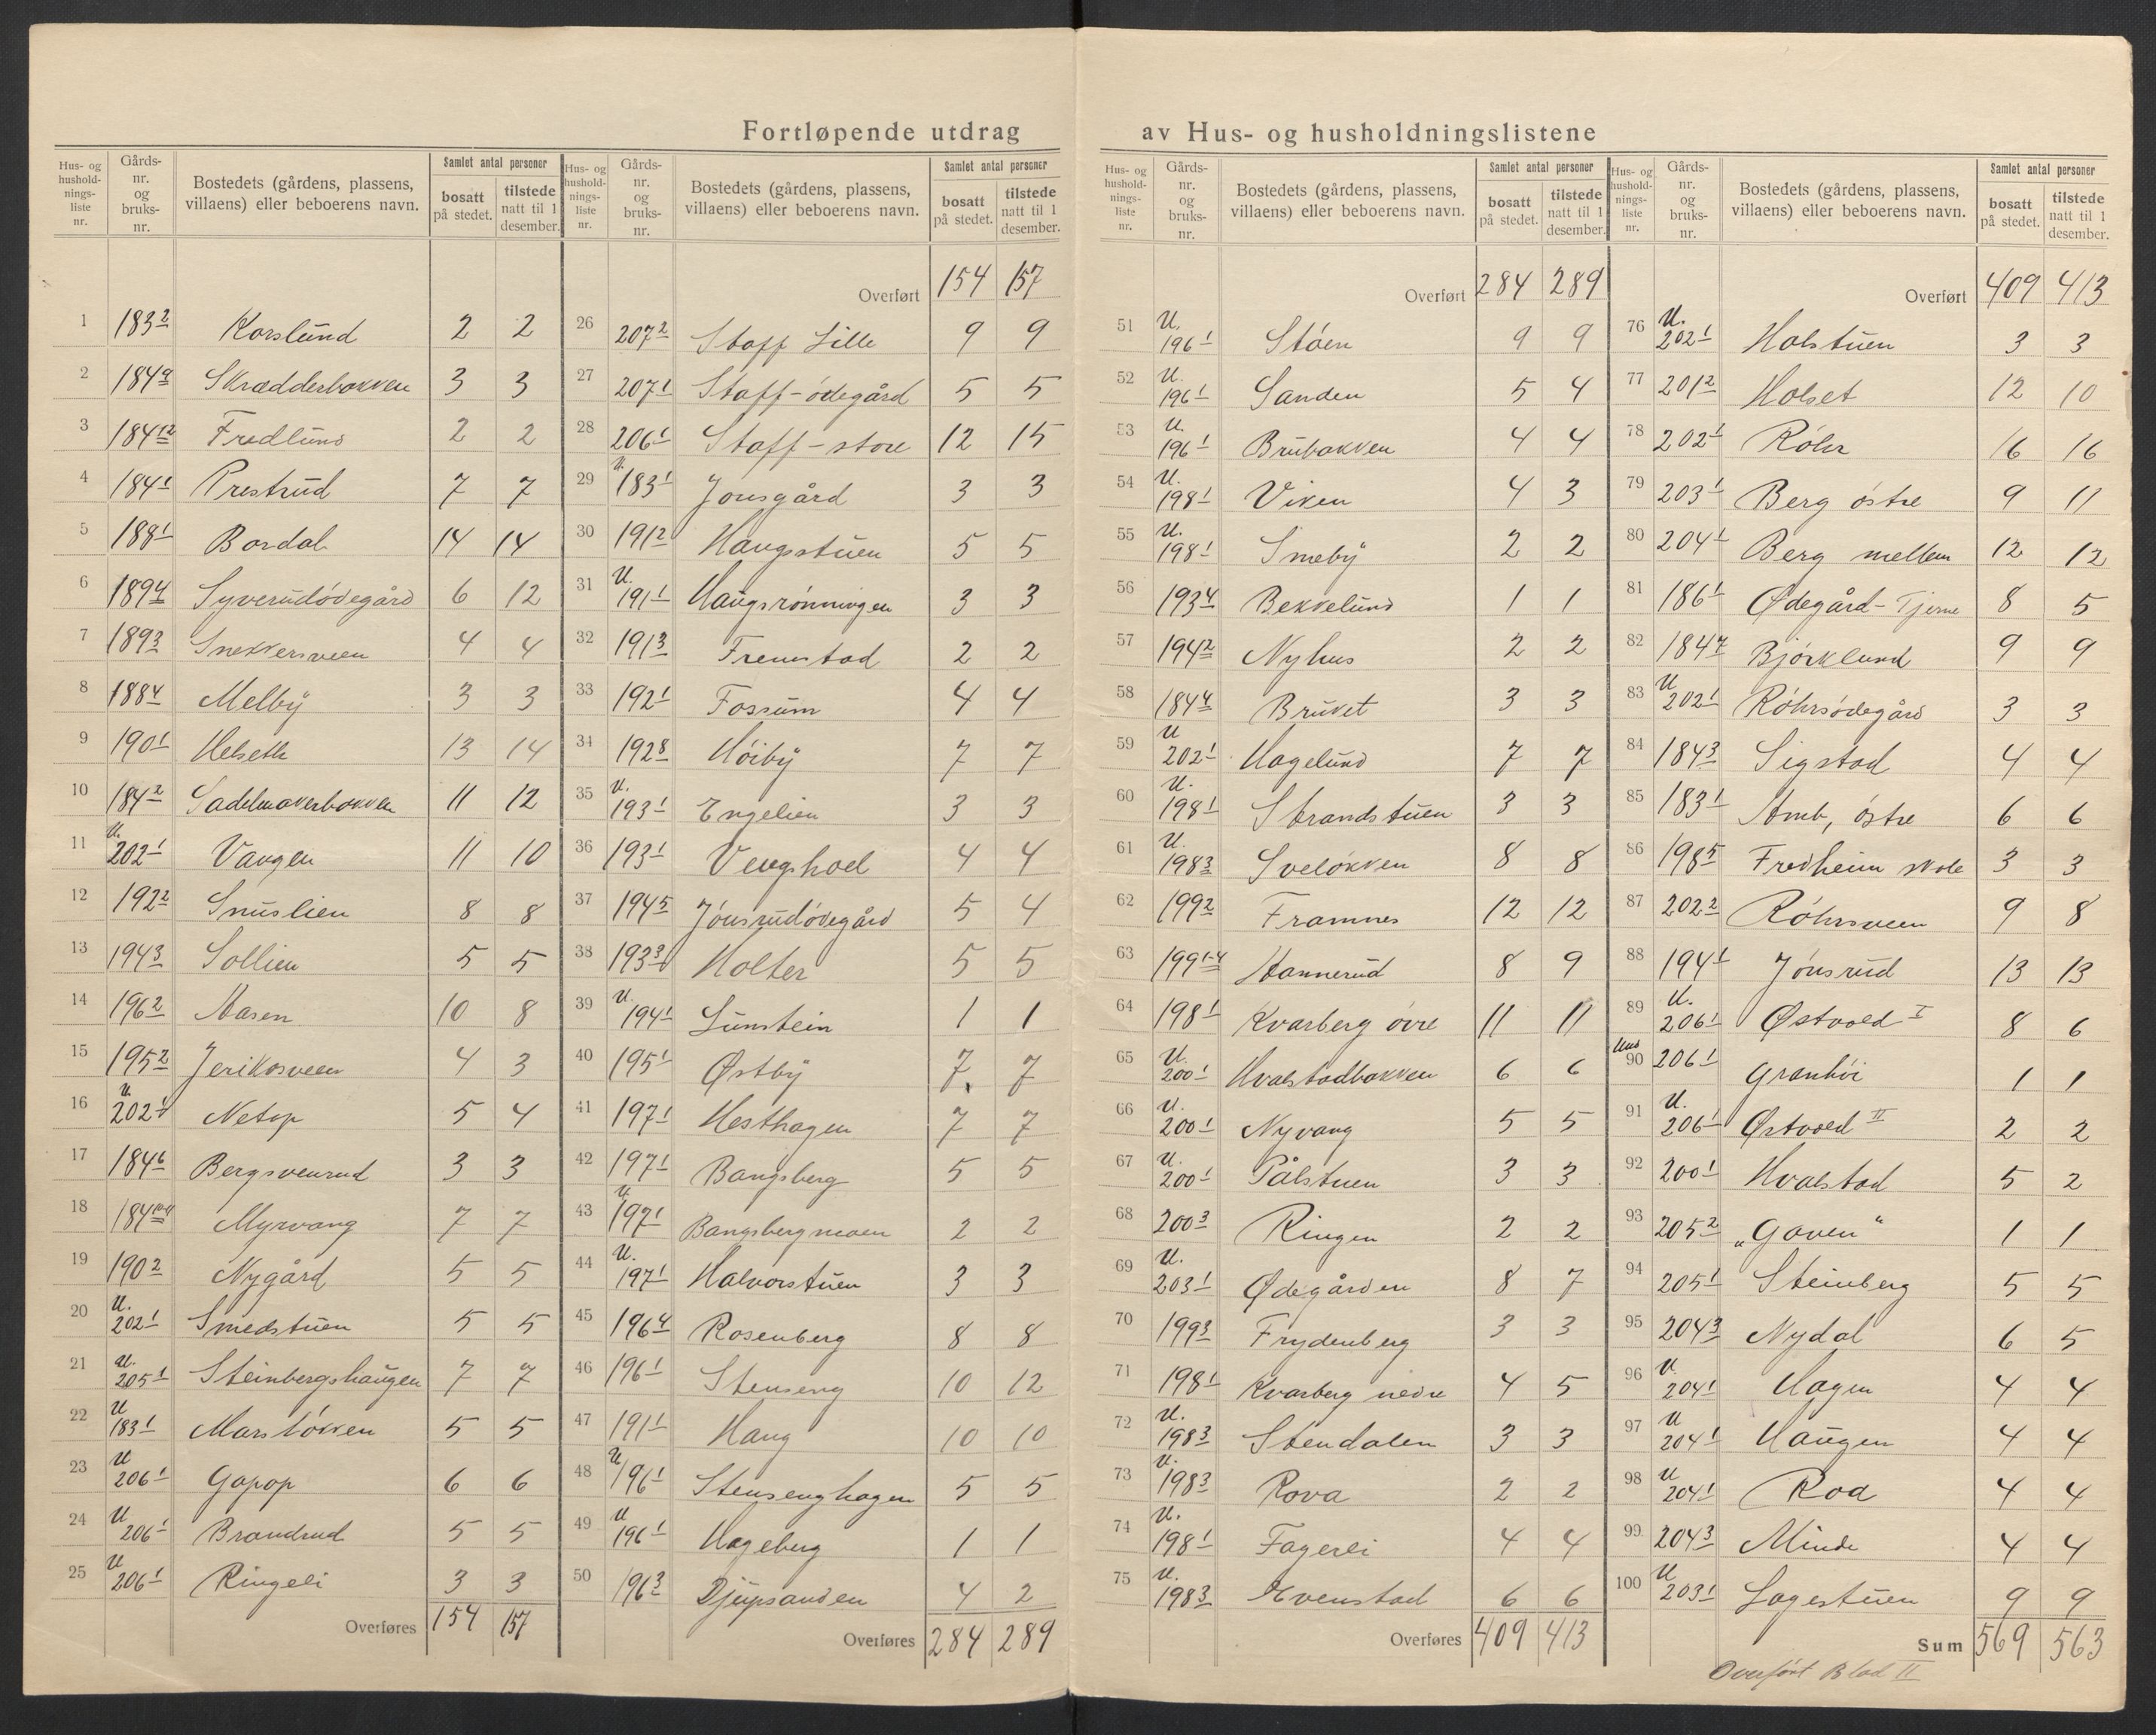 Fortløpende utdrag av Hus- og husholdningslistene
Hus- og husholdningsliste nr. Gårds- nr. og bruks- nr. Bostedets (gårdens, plassens, villaens) eller beboerens navn. Samlet antal personer bosatt på stedet. tilstede natt til 1 desember.
1 183/2 Korslund 2 2
2 184/9 Skrædderbakken 3 3
3 184/12 Fredlund 2 2
4 184/1 Prestrud 7 7
5 188/1 Bardal 14 14
6 189/4 Syverudødegård 6 12
7 189/3 Snekkersveen 4 4
8 188/4 Melby 3 3
9 190/1 Helseth 13 14
10 184/2 Sadelmakerbakken 11 12
11 U. 202/1 Vangen 11 10
12 192/2 Snuslien 8 8
13 194/3 Sollien 5 5
14 196/2 Aasen 10 8
15 195/2 Jerikosveen 4 3
16 U. 202/1 Netop 5 4
17 184/6 Bergsvenrud 3 3
18 184/10-11 Myrvang 7 7
19 190/2 Nygård 5 5
20 U. 202/1 Smedstuen 5 5
21 U. 205/1 Steinbergshaugen 7 7
22 U 183/1 Marsløkken 5 5
23 U 206/1 Gapop 6 6
24 U 206/1 Brandrud 5 5
25 U 206/1 Ringeli 3 3
Overføres 154 157
Hus- og husholdningsliste nr. Gårds- nr. og bruks- nr. Bostedets (gårdens, plassens, villaens) eller beboerens navn. Samlet antal personer bosatt på stedet. tilstede natt til 1 desember.
Overført 154 157
26 207/2 Staff Lille 9 9
27 207/1 Staff-ødegård 5 5
28 206/1 Staff-store 12 15
29 U. 183/1 Jonsgård 3 3
30 191/2 Haugsstuen 5 5
31 U. 191/1 Haugsrønningen 3 3
32 191/3 Fremstad 2 2
33 192/1 Fossum 4 4
34 192/8 Høiby 7 7
35 U. 193/1 Engelien 3 3
36 193/1 Venghoel 4 4
37 194/5 Jønsrudødegård 5 4
38 193/3 Holter 5 5
39 U. 194/1 Sunstein 1 1
40 195/1 Østby 7 7
41 197/1 Hesthagen 7 7
42 197/1 Bangsberg 5 5
43 U. 197/1 Bangsbergmoen 2 2
44 U. 197/1 Halvorstuen 3 3
45 196/4 Rosenberg 8 8
46 196/1 Stenseng 10 12
47 191/1 Haug 10 10
48 U 196/1 Stensenghagen 5 5
49 U 196/1 Hageberg 1 1
50 196/3 Djupsanden 4 2
Overføres 284 289
Hus- og husholdningsliste nr. Gårds- nr. og bruks- nr. Bostedets (gårdens, plassens, villaens) eller beboerens navn. Samlet antal personer bosatt på stedet. tilstede natt til 1 desember.
Overført 284 289
51 U. 196/1 Støen 9 9
52 U. 196/1 Sanden 5 4
53 U. 196/1 Brubakken 4 4
54 U. 198/1 Viken 4 3
55 U. 198/1 Smeby 2 2
56 193/4 Bekkelund 1 1
57 194/2 Nyhus 2 2
58 184/4 Bruket 3 3
59 U 202/1 Hagelund 7 7
60 U. 198/1 Strandstuen 3 3
61 U. 198/3 Sveløkken 8 8
62 199/2 Framnes 12 12
63 199/1-4 Hannerud 8 9
64 198/1 Kvarberg øvre 11 11
65 U. 200/1 Hvalstadbakken 6 6
66 U. 200/1 Nyvang 5 5
67 U. 200/1 Pålstuen 3 3
68 200/3 Ringen 2 2
69 U. 203/1 Ødegården 8 7
70 199/3 Frydenberg 3 3
71 198/1 Kvarberg nedre 4 5
72 U. 198/3 Stendalen 3 3
73 U. 198/3 Rova 2 2
74 U. 198/1 Fagerli 4 4
75 U. 198/3 Evenstad 6 6
Overføres 409 413
Hus- og husholdningsliste nr. Gårds- nr. og bruks- nr. Bostedets (gårdens, plassens, villaens) eller beboerens navn. Samlet antal personer bosatt på stedet. tilstede natt til 1 desember.
Overført 409 413
76 U. 202/1 Halstuen 3 3
77 201/2 Holset 12 10
78 202/1 Røhr 16 16
79 203/1 Berg østre 9 11
80 204/1 Berg mellem 12 12
81 186/1 Ødegård-Tjerne 8 5
82 184/7 Bjørklund 9 9
83 U 202/1 Røhrsødegård 3 3
84 184/3 Sigstad 4 4
85 183/1 Amb, østre 6 6
86 198/5 Fredheim skole 3 3
87 202/2 Røhrsveen 9 8
88 194/1 Jønsrud 13 13
89 U. 206/1 Østvold I 8 6
90 206/1 Granhøi 1 1
91 U. 206/1 Østvold II 2 2
92 200/1 Hvalstad 5 2
93 205/2 „Gaven“ 1 1
94 205/1 Steinberg 5 5
95 204/3 Nydal 6 5
96 U. 204/1 Hagen 4 4
97 U 204/1 Haugen 4 4
98 U 204/1 Roa 4 4
99 204/3 Minde 4 4
100 U 203/1 Lagestuen 9 9
Sum 569 563
Overført Blad II